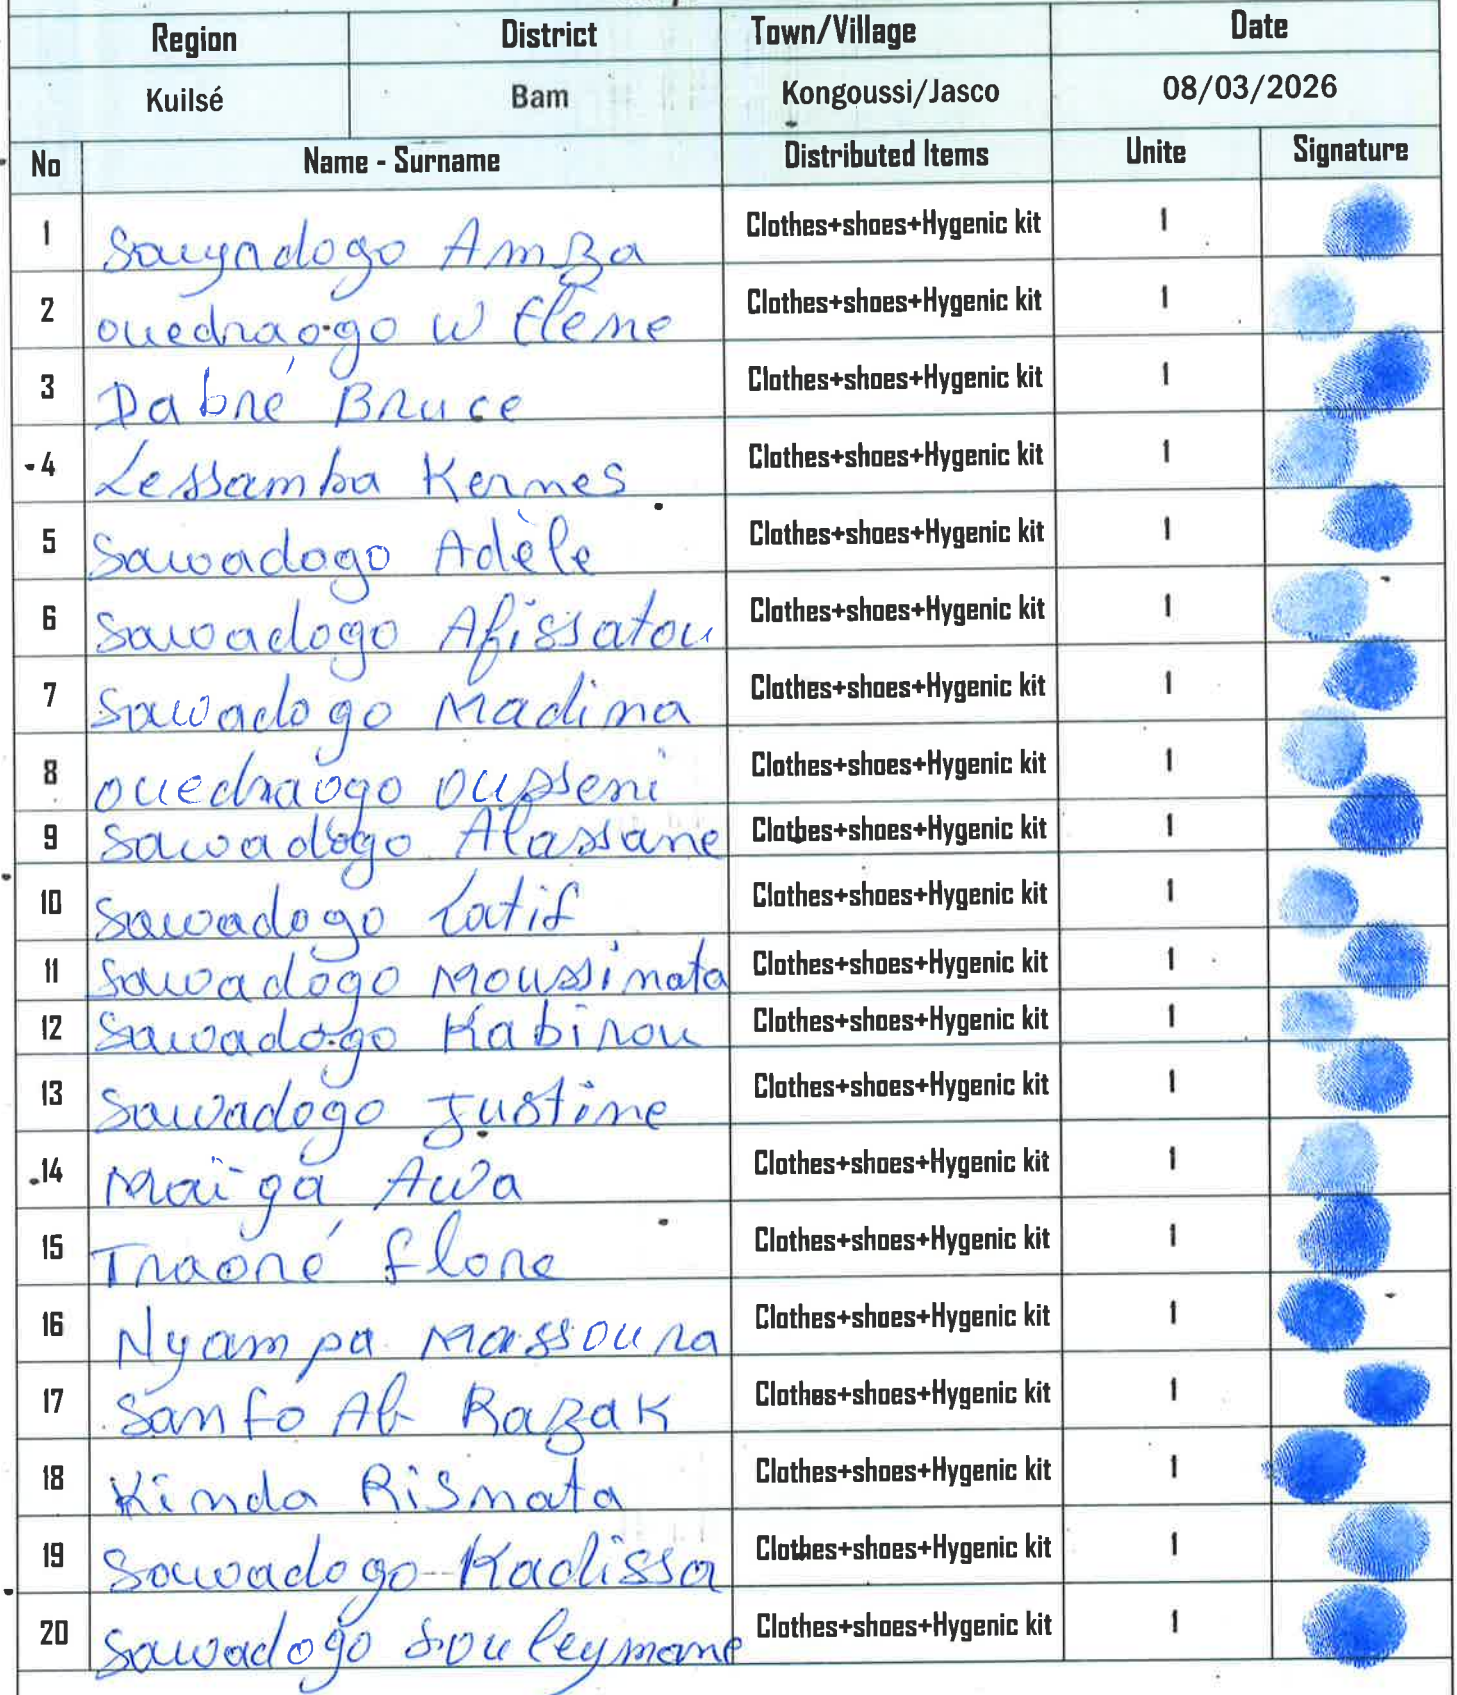 Region District Town/Village Date
Kuilsé Bam Kongoussi/Jasco 08/03/2026
No Name - Surname Distributed Items Unite Signature
1 Sawadogo Amza Clothes+shoes+Hygenic kit 1
2 ouedraogo W Elene Clothes+shoes+Hygenic kit 1
3 Dabré Bruce Clothes+shoes+Hygenic kit 1
4 Zessamba Kermes Clothes+shoes+Hygenic kit 1
5 Sawadogo Adèle Clothes+shoes+Hygenic kit 1
6 Sawadogo Afissatou Clothes+shoes+Hygenic kit 1
7 Sawadogo Madina Clothes+shoes+Hygenic kit 1
8 ouedraogo ousseni Clothes+shoes+Hygenic kit 1
9 Sawadogo Alassane Clothes+shoes+Hygenic kit 1
10 Sawadogo Latif Clothes+shoes+Hygenic kit 1
11 Sawadogo Moussinata Clothes+shoes+Hygenic kit 1
12 Sawadogo Kabirou Clothes+shoes+Hygenic kit 1
13 Sawadogo Justine Clothes+shoes+Hygenic kit 1
14 Maïga Awa Clothes+shoes+Hygenic kit 1
15 Traoré flore Clothes+shoes+Hygenic kit 1
16 Nyampa Massoura Clothes+shoes+Hygenic kit 1
17 Sanfo Ab Razak Clothes+shoes+Hygenic kit 1
18 Kinda Rismata Clothes+shoes+Hygenic kit 1
19 Sawadogo Kadissa Clothes+shoes+Hygenic kit 1
20 Sawadogo Souleymane Clothes+shoes+Hygenic kit 1